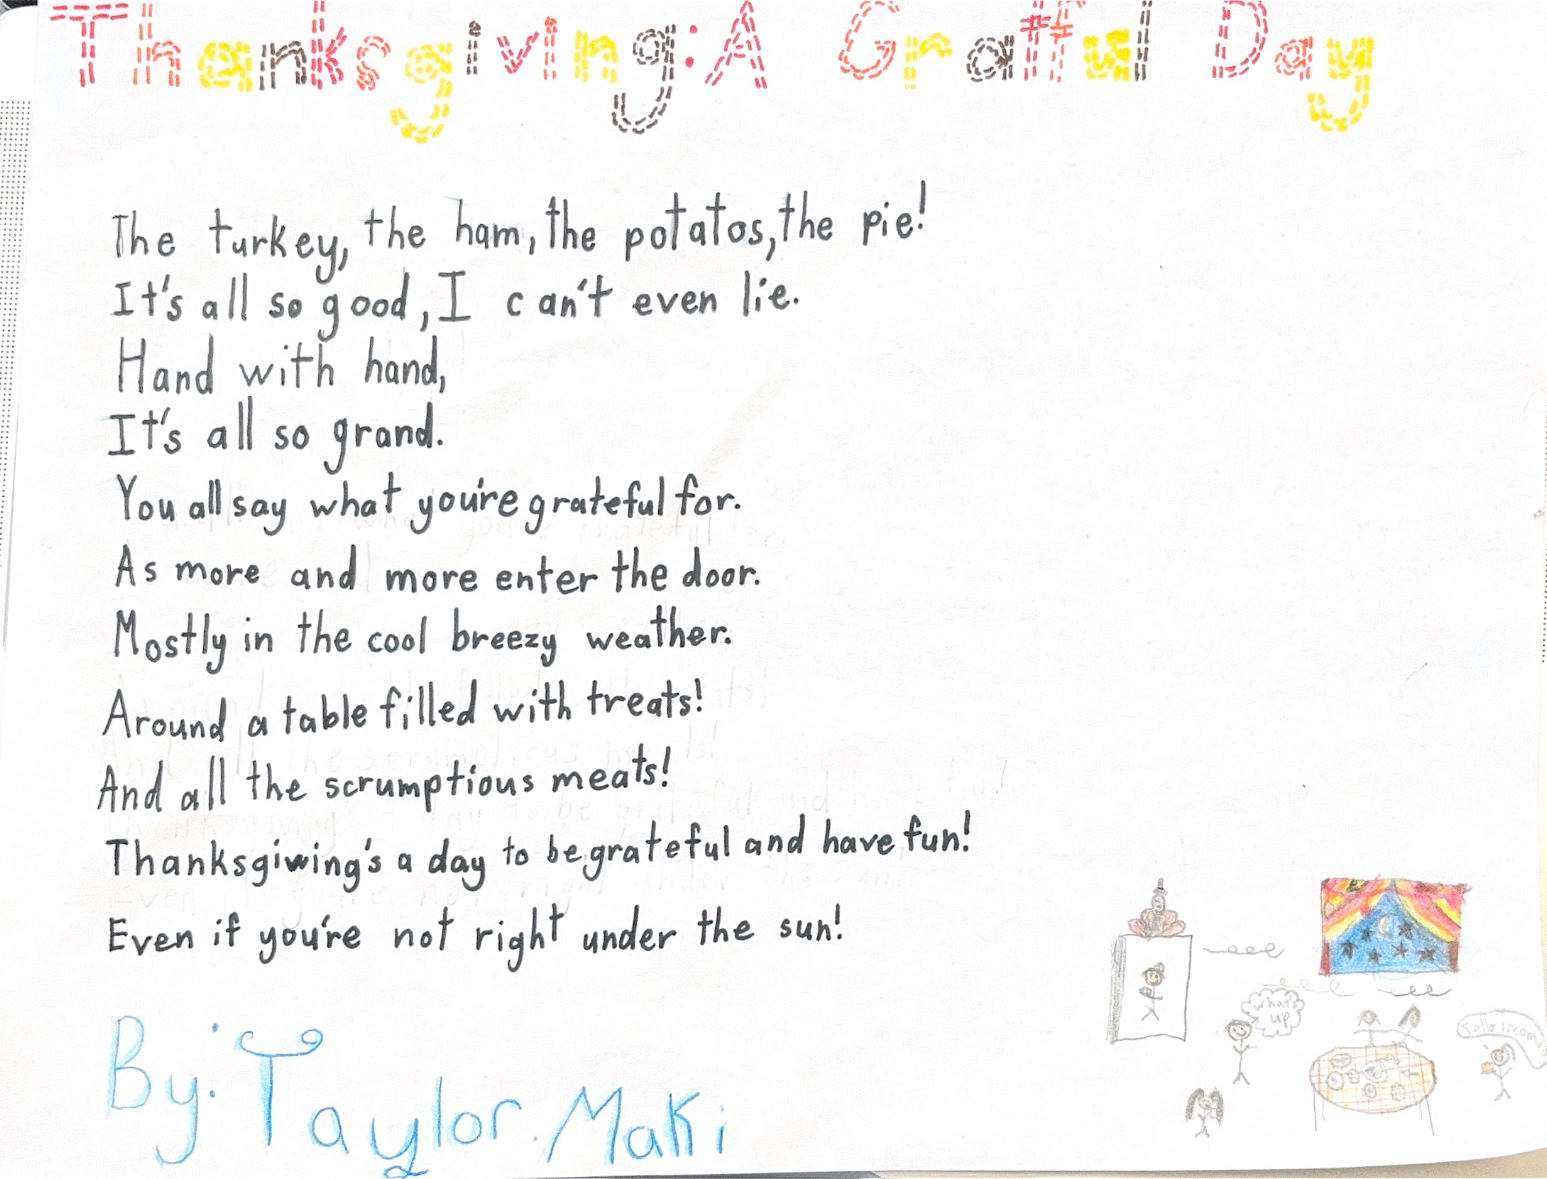 Thanksgiving: A Gratful Day
The turkey, the ham, the potatos, the pie!
It's all so good, I can't even lie.
Hand with hand,
It's all so grand.
You all say what you're grateful for.
As more and more enter the door.
Mostly in the cool breezy weather.
Around a table filled with treats!
And all the scrumptious meats!
Thanksgiving's a day to be grateful and have fun!
Even if you're not right under the sun!
what's
up
By: Taylor Maki